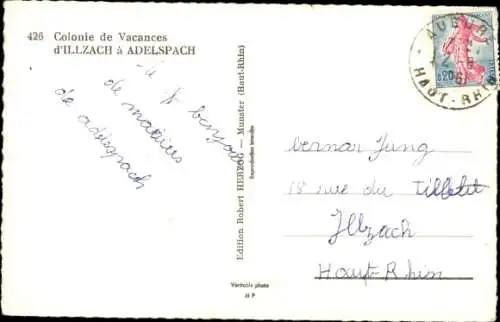 426 Colonie de Vacances
d'ILLZACH à ADELSPACH
bonjour
de
de adelspach
Edition Robert HERZOG — Munster (Haut-Rhin)
Reproduction interdite
Véritable photo
M P
AUBUR
HAUT-RHIN
0,20
bernar Jung
18 rue du Tilleul
Illzach
Haut-Rhin